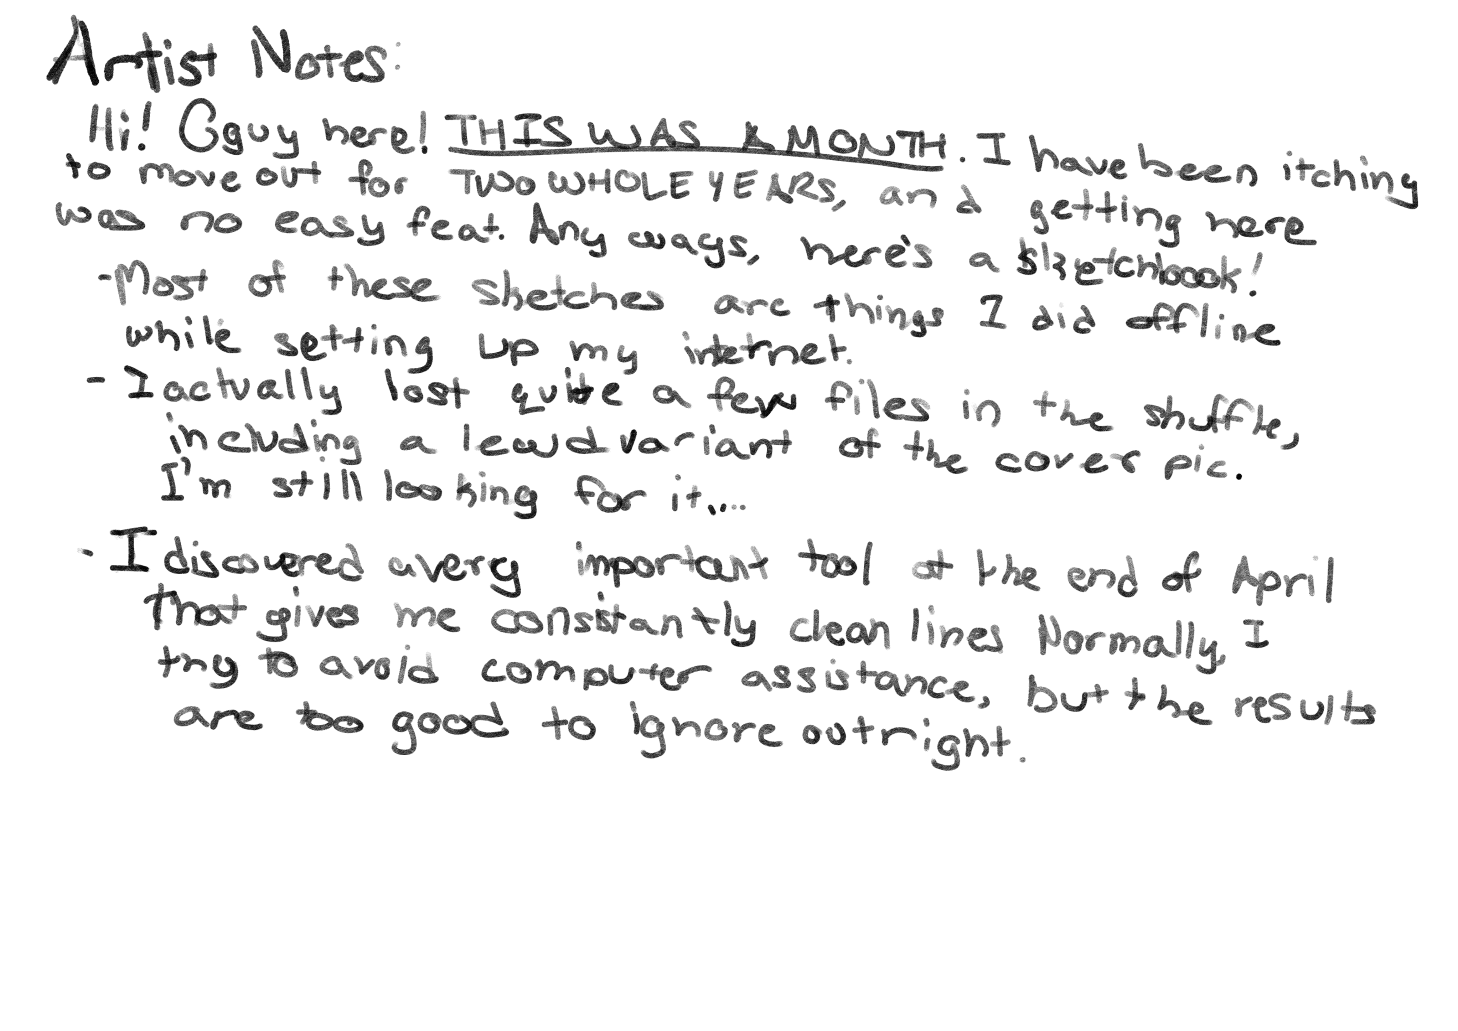 Artist Notes:
Hi! Gguy here! THIS WAS A MONTH. I have been itching
to move out for TWO WHOLE YEARS, and getting here
was no easy feat. Any ways, here's a sketchbook!
-Most of these sketches are things I did offline
while setting up my internet.
- I actually lost quite a few files in the shuffle,
including a lewd variant of the cover pic.
I'm still looking for it....
- I discovered a very important tool at the end of April
that gives me consistantly clean lines Normally, I
try to avoid computer assistance, but the results
are too good to ignore outright.